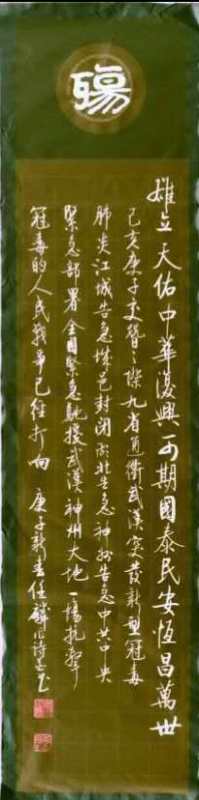 殤
雄立天佑中華復興可期國泰民安恆昌萬世
己亥庚子交替之際九省通衢武漢突發新型冠毒
肺炎江城告急城邑封閉湖北告急神州告急中共中央
緊急部署全國緊急馳援武漢神州大地一場抗擊
冠毒的人民戰爭已經打响 庚子新春任